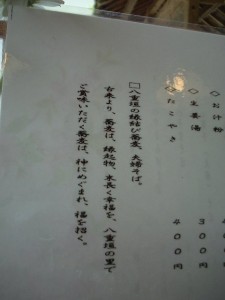 ◇お汁粉 400円
◇生姜湯 300円
◇たこやき 400円
□八重垣の縁結び蕎麦、夫婦そば。
古来より、蕎麦は、縁起物、末長く幸福を、八重垣の里で
ご賞味いただく蕎麦は、神にめぐまれ、福を招く。